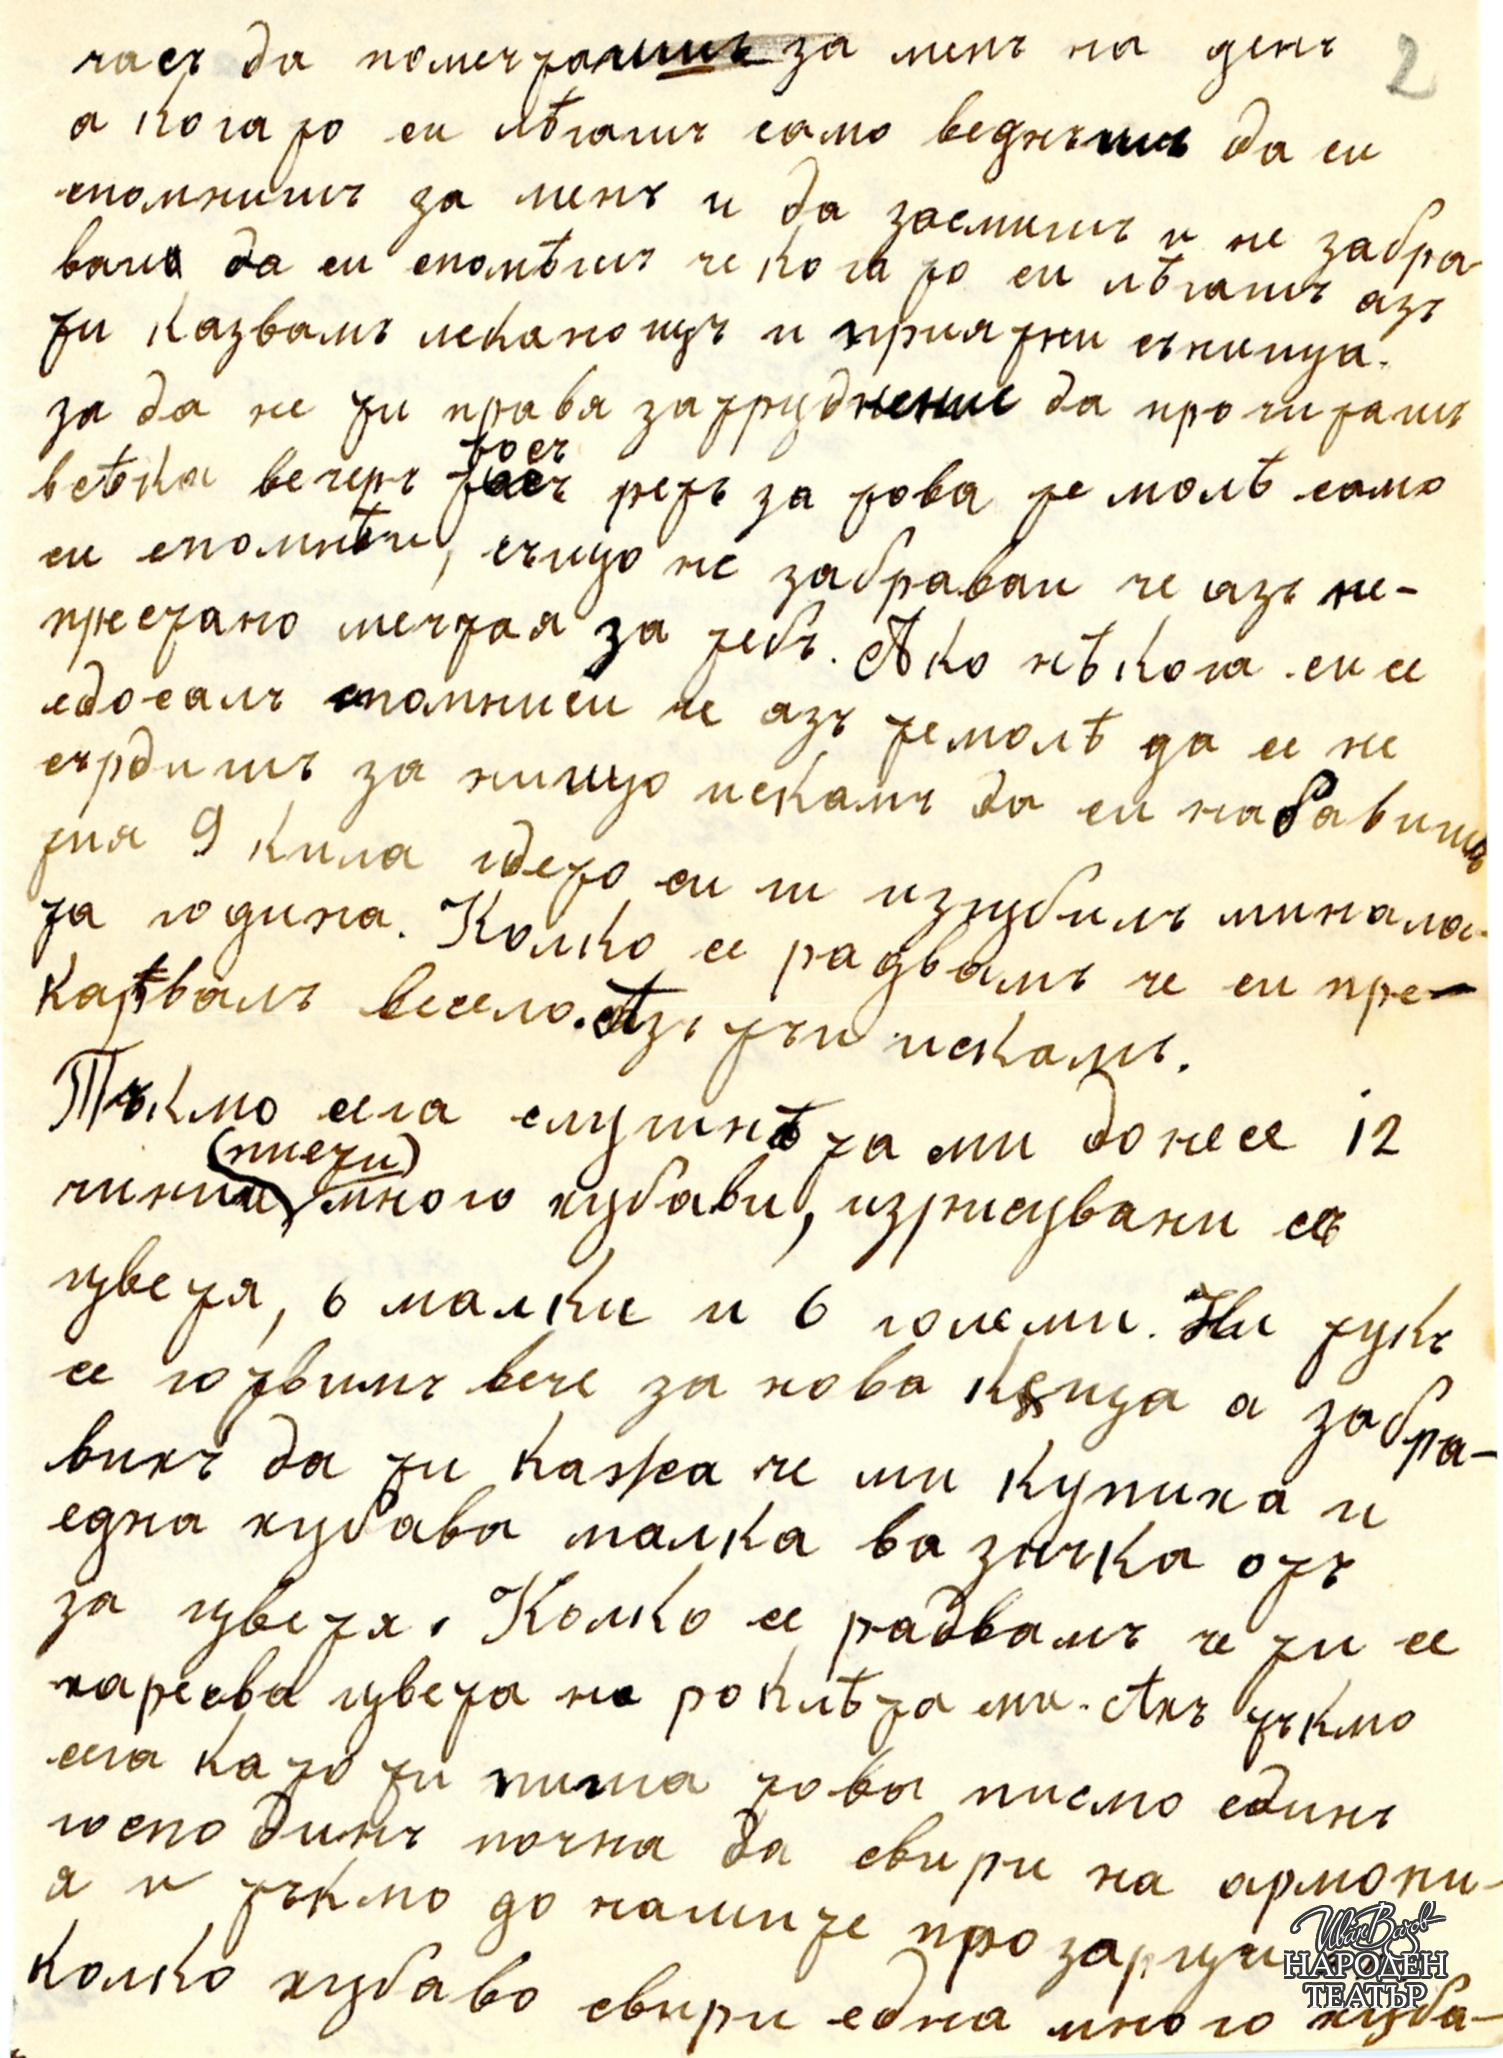 2
часъ да помечтаишъ за менъ на день
а когато си лѣгашъ само веднъшъ да си
спомнишъ за менъ и да заспишъ и не забра-
вяи да си спомнѣшъ че когато си лѣгашъ азъ
ти казвамъ леканощъ и приятни сънища.
за да не ти правя затруднение да прочиташъ
всѣка вечерь тоєъ редъ за това те молѣ само
си спомнѣи, също не забравяи че азъ не-
престано мечтая за тебъ. Ако нѣкога си се
едосалъ спомниси че азъ темолѣ да се не
сърдишъ за нищо искамъ да си набавишъ
тия 9 кила дето си ги изгубилъ минала-
та година. Колко се радвамъ че си пре-
карѣвалъ весело. Азъ тъи искамъ.
Тъкмо сега слугинѣта ми донесе 12
(пиети)
чинии много хубави, изрисувани съ
цветя, 6 малки и 6 големи. Ни тукъ
се готвимъ вече за нова къща а забра-
вихъ да ти кажа че ми купиха и
една хубава малка вазичка отъ
за цветя. Колко се радвамъ че ти се
харесва цвета на роклѣта ми. Ахъ тъкмо
сега като ти пиша това писмо единъ
господинъ почна да свири на армони-
я и тъкмо до нашите прозарци
колко хубаво свири една много хуба-
Иван Вазов
НАРОДЕН
ТЕАТЪР